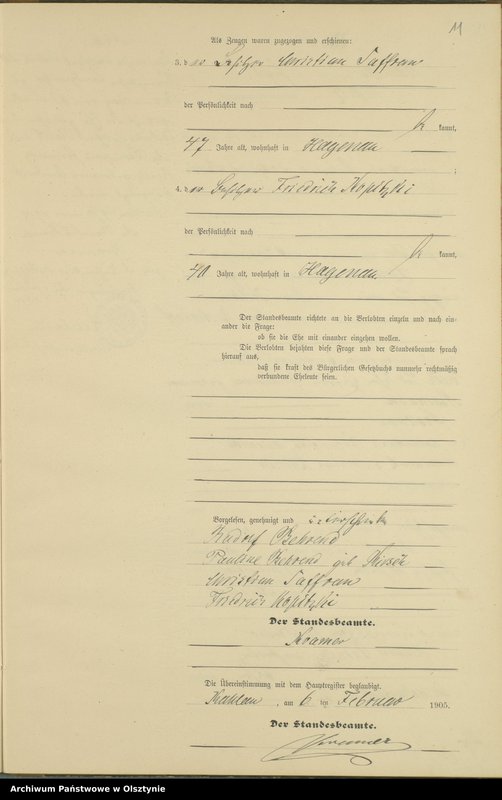 11
Als Zeugen waren zugezogen und erschienen:
3. der Besitzer Christian Saffran
der Persönlichkeit nach
be kannt,
47 Jahre alt, wohnhaft in Hagenau
4. der Besitzer Friedrich Kopitzki
der Persönlichkeit nach
be kannt,
40 Jahre alt, wohnhaft in Hagenau
Der Standesbeamte richtete an die Verlobten einzeln und nach ein-
ander die Frage:
ob sie die Ehe mit einander eingehen wollen.
Die Verlobten bejahten diese Frage und der Standesbeamte sprach
hierauf aus,
daß sie kraft des Bürgerlichen Gesetzbuchs nunmehr rechtmäßig
verbundene Eheleute seien.
Vorgelesen, genehmigt und unterschrieben
Rudolf Behrend
Pauline Behrend geb
Christian Saffran
Friedrich Kopitzki
Der Standesbeamte.
Kramer
Die Übereinstimmung mit dem Hauptregister beglaubigt.
Kahlau, am 6 ten Februar 1905.
Der Standesbeamte.
Kramer
Archiwum Państwowe w Olsztynie